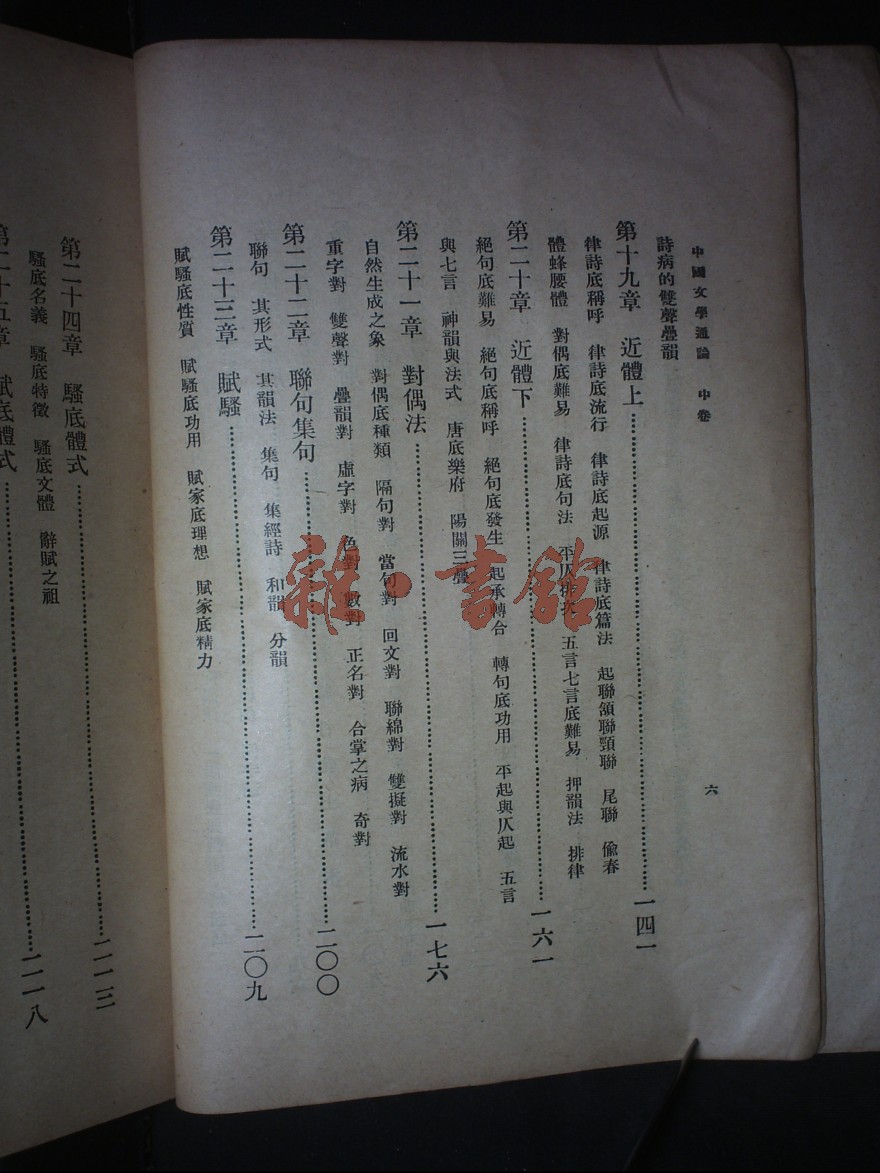 中國文學通論 中卷
六
詩病的雙聲疊韻
第十九章 近體上……一四一
律詩底稱呼 律詩底流行 律詩底起源 律詩底篇法 起聯頷聯頸聯 尾聯 偷春
體蜂腰體 對偶底難易 律詩底句法 平仄排次 五言七言底難易 押韻法 排律
第二十章 近體下……一六一
絕句底難易 絕句底稱呼 絕句底發生 起承轉合 轉句底功用 平起與仄起 五言
與七言 神韻與法式 唐底樂府 陽關三疊
第二十一章 對偶法……一七六
自然生成之象 對偶底種類 隔句對 當句對 回文對 聯綿對 雙擬對 流水對
重字對 雙聲對 疊韻對 虛字對 色對 數對 正名對 合掌之病 奇對
第二十二章 聯句集句……二〇〇
聯句 其形式 其韻法 集句 集經詩 和韻 分韻
第二十三章 賦騷……二〇九
賦騷底性質 賦騷底功用 賦家底理想 賦家底精力
第二十四章 騷底體式……二一三
騷底名義 騷底特徵 騷底文體 辭賦之祖
第二十五章 賦底體式……二一八
雜·書館